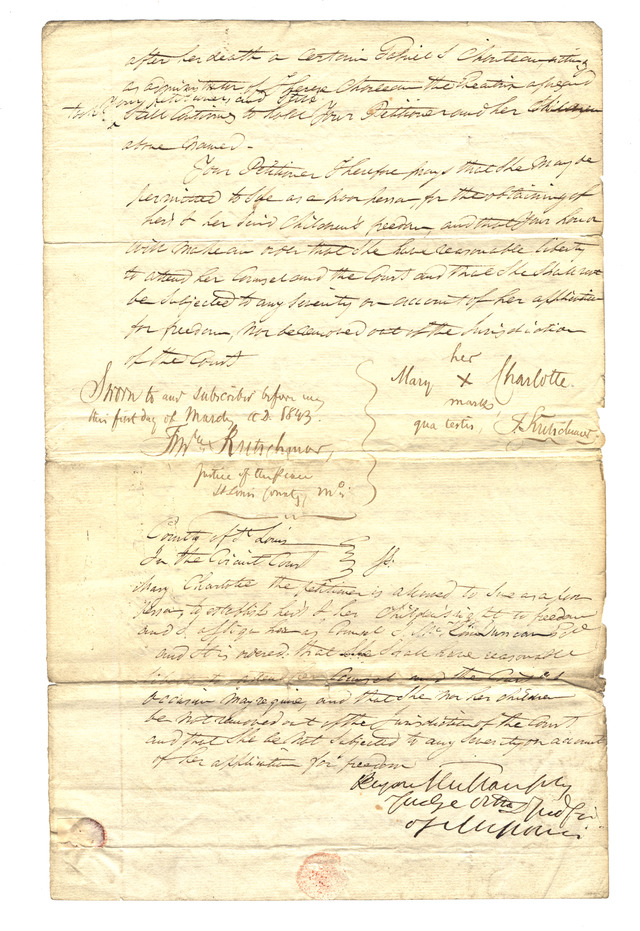 after her death a certain Gabriel S Choteau acting
as administrator of Therese Choteau the
your petitioners and still
still continues to hold Your Petitioner and her Children
above named -
Your Petitioner Therefore prays that She may be
permitted to Sue as a poor person for the obtaining of
hers & her said Children's freedom and that Your Honor
will make an order that She have reasonable liberty
to attend her Counsel and the Court and that She Shall not
be Subjected to any Severity on account of her application
for freedom, Nor be removed out of the Jurisdiction
of the Court
her
Mary X Charlotte.
mark
qua testis, F. Kretschmar
Sworn to and subscribed before me
this first day of March A.D. 1843.
Kretschmar,
Justice of the Peace
St Louis County, Mo.
County of St Louis
In the Circuit Court } ss.
Mary Charlotte the petitioner is allowed to Sue as a poor
person to establish hers & her children's right to freedom
and I assign her as Counsel
and it is ordered that she shall have reasonable
liberty to attend her Counsel and the Court as
occasion may require and that She nor her children
be not removed out of the Jurisdiction of the Court
and that She be not Subjected to any Severity on account
of her application for freedom
Bryan Mullanphy
Judge of the
of Missouri